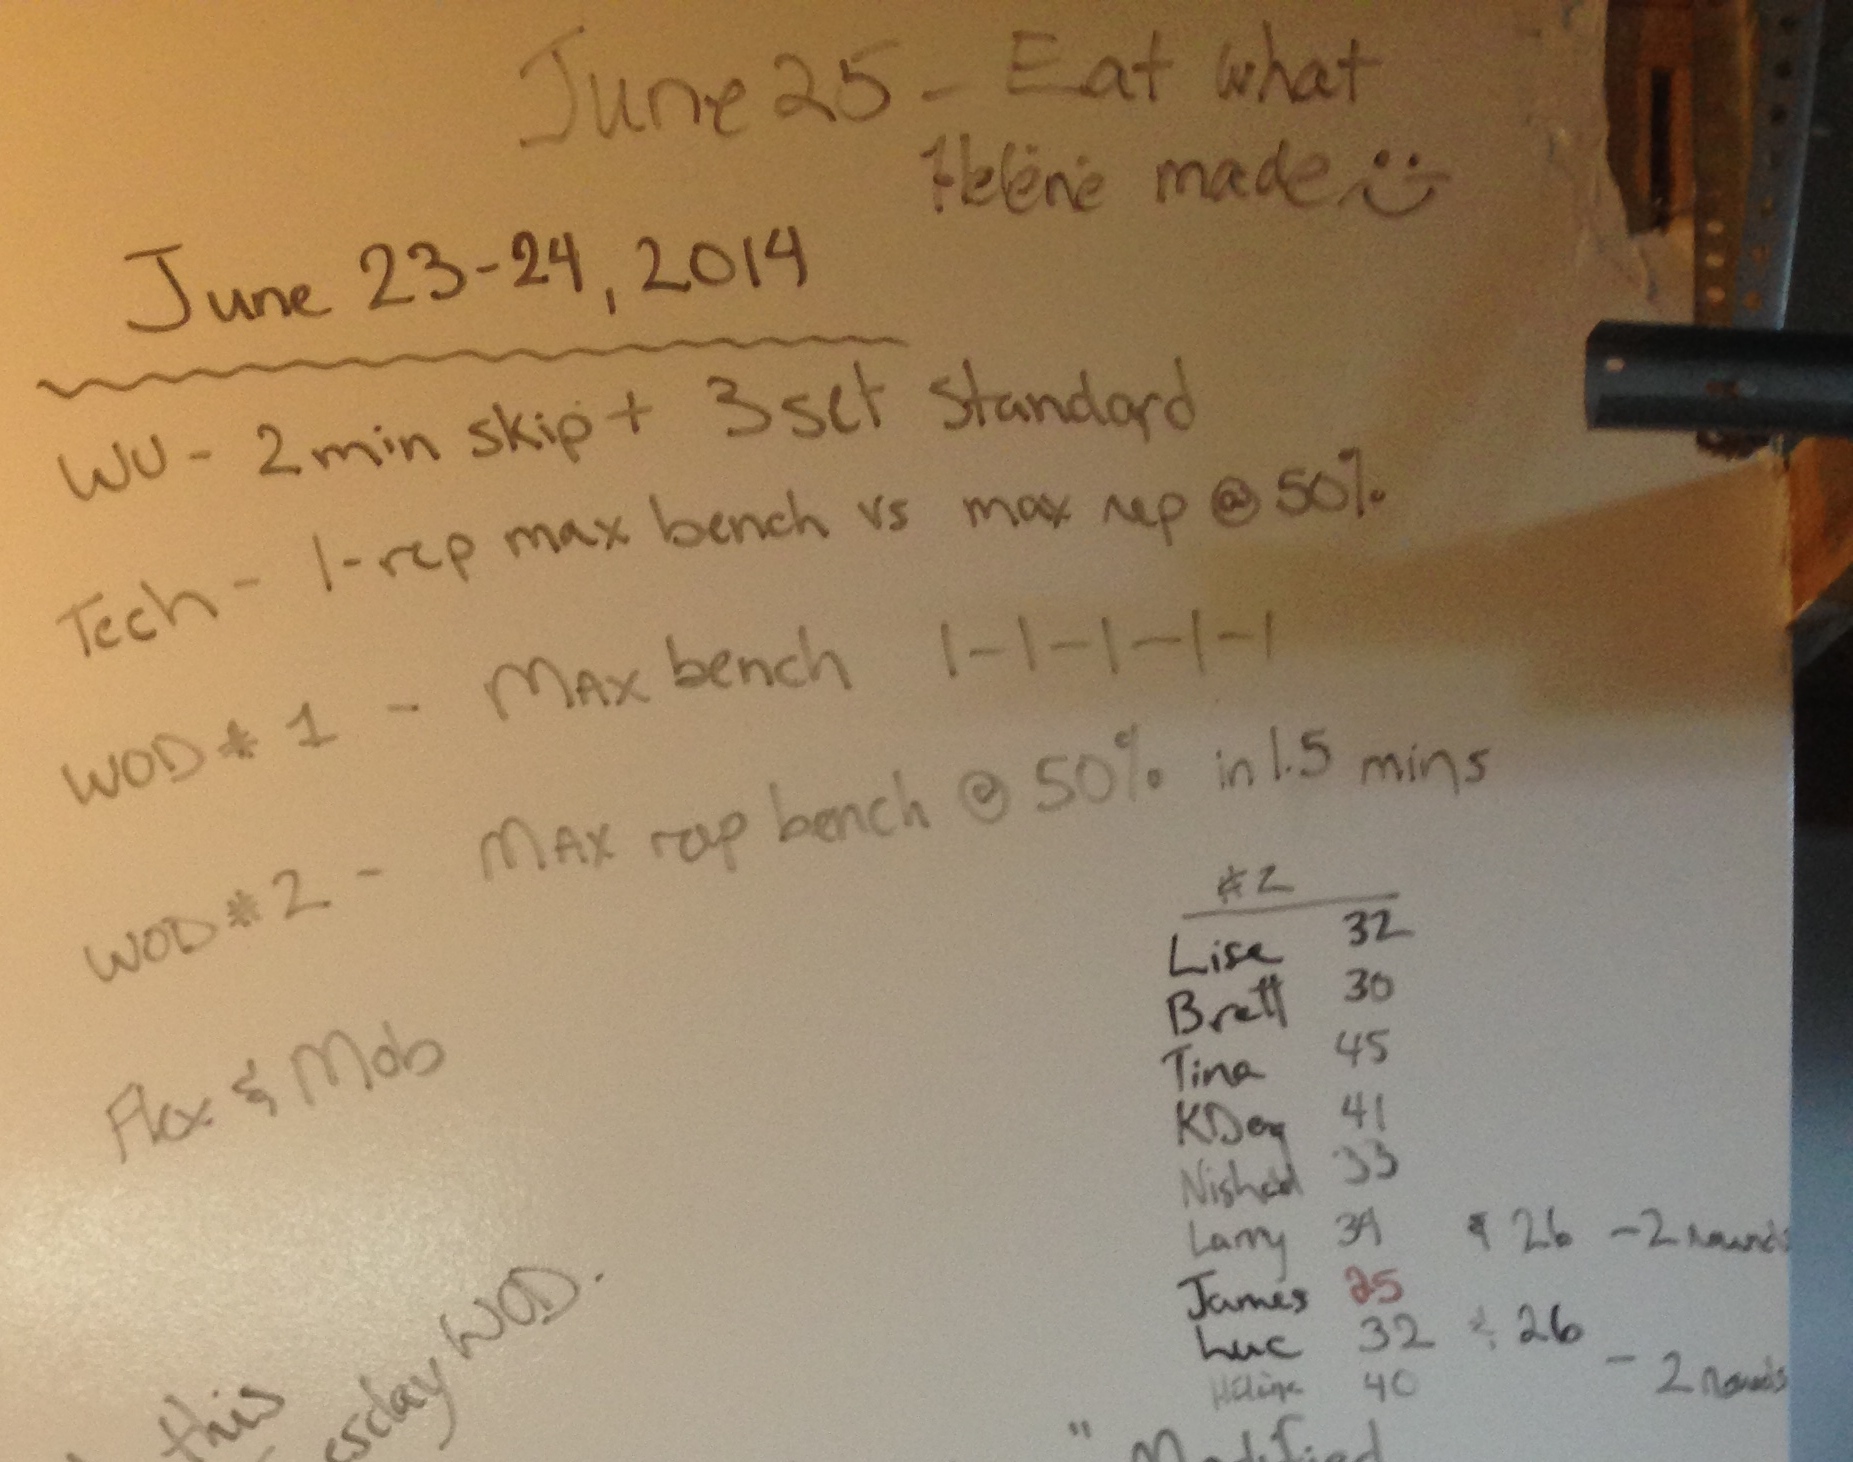 June 25 - Eat what
Helene made :)
June 23-24, 2014
WU - 2 min skip + 3 set Standard
Tech - 1-rep max bench vs max rep @ 50%
WOD # 1 - MAX bench 1-1-1-1-1
WOD # 2 - MAX rep bench @ 50% in 1.5 mins
Flex & Mob
#2
Lise 32
Brett 30
Tina 45
KDog 41
Nishad 33
Larry 34 & 26 - 2 rounds
James 25
Luc 32 & 26
Hélène 40 - 2 rounds
this
esday WOD.
" Modified